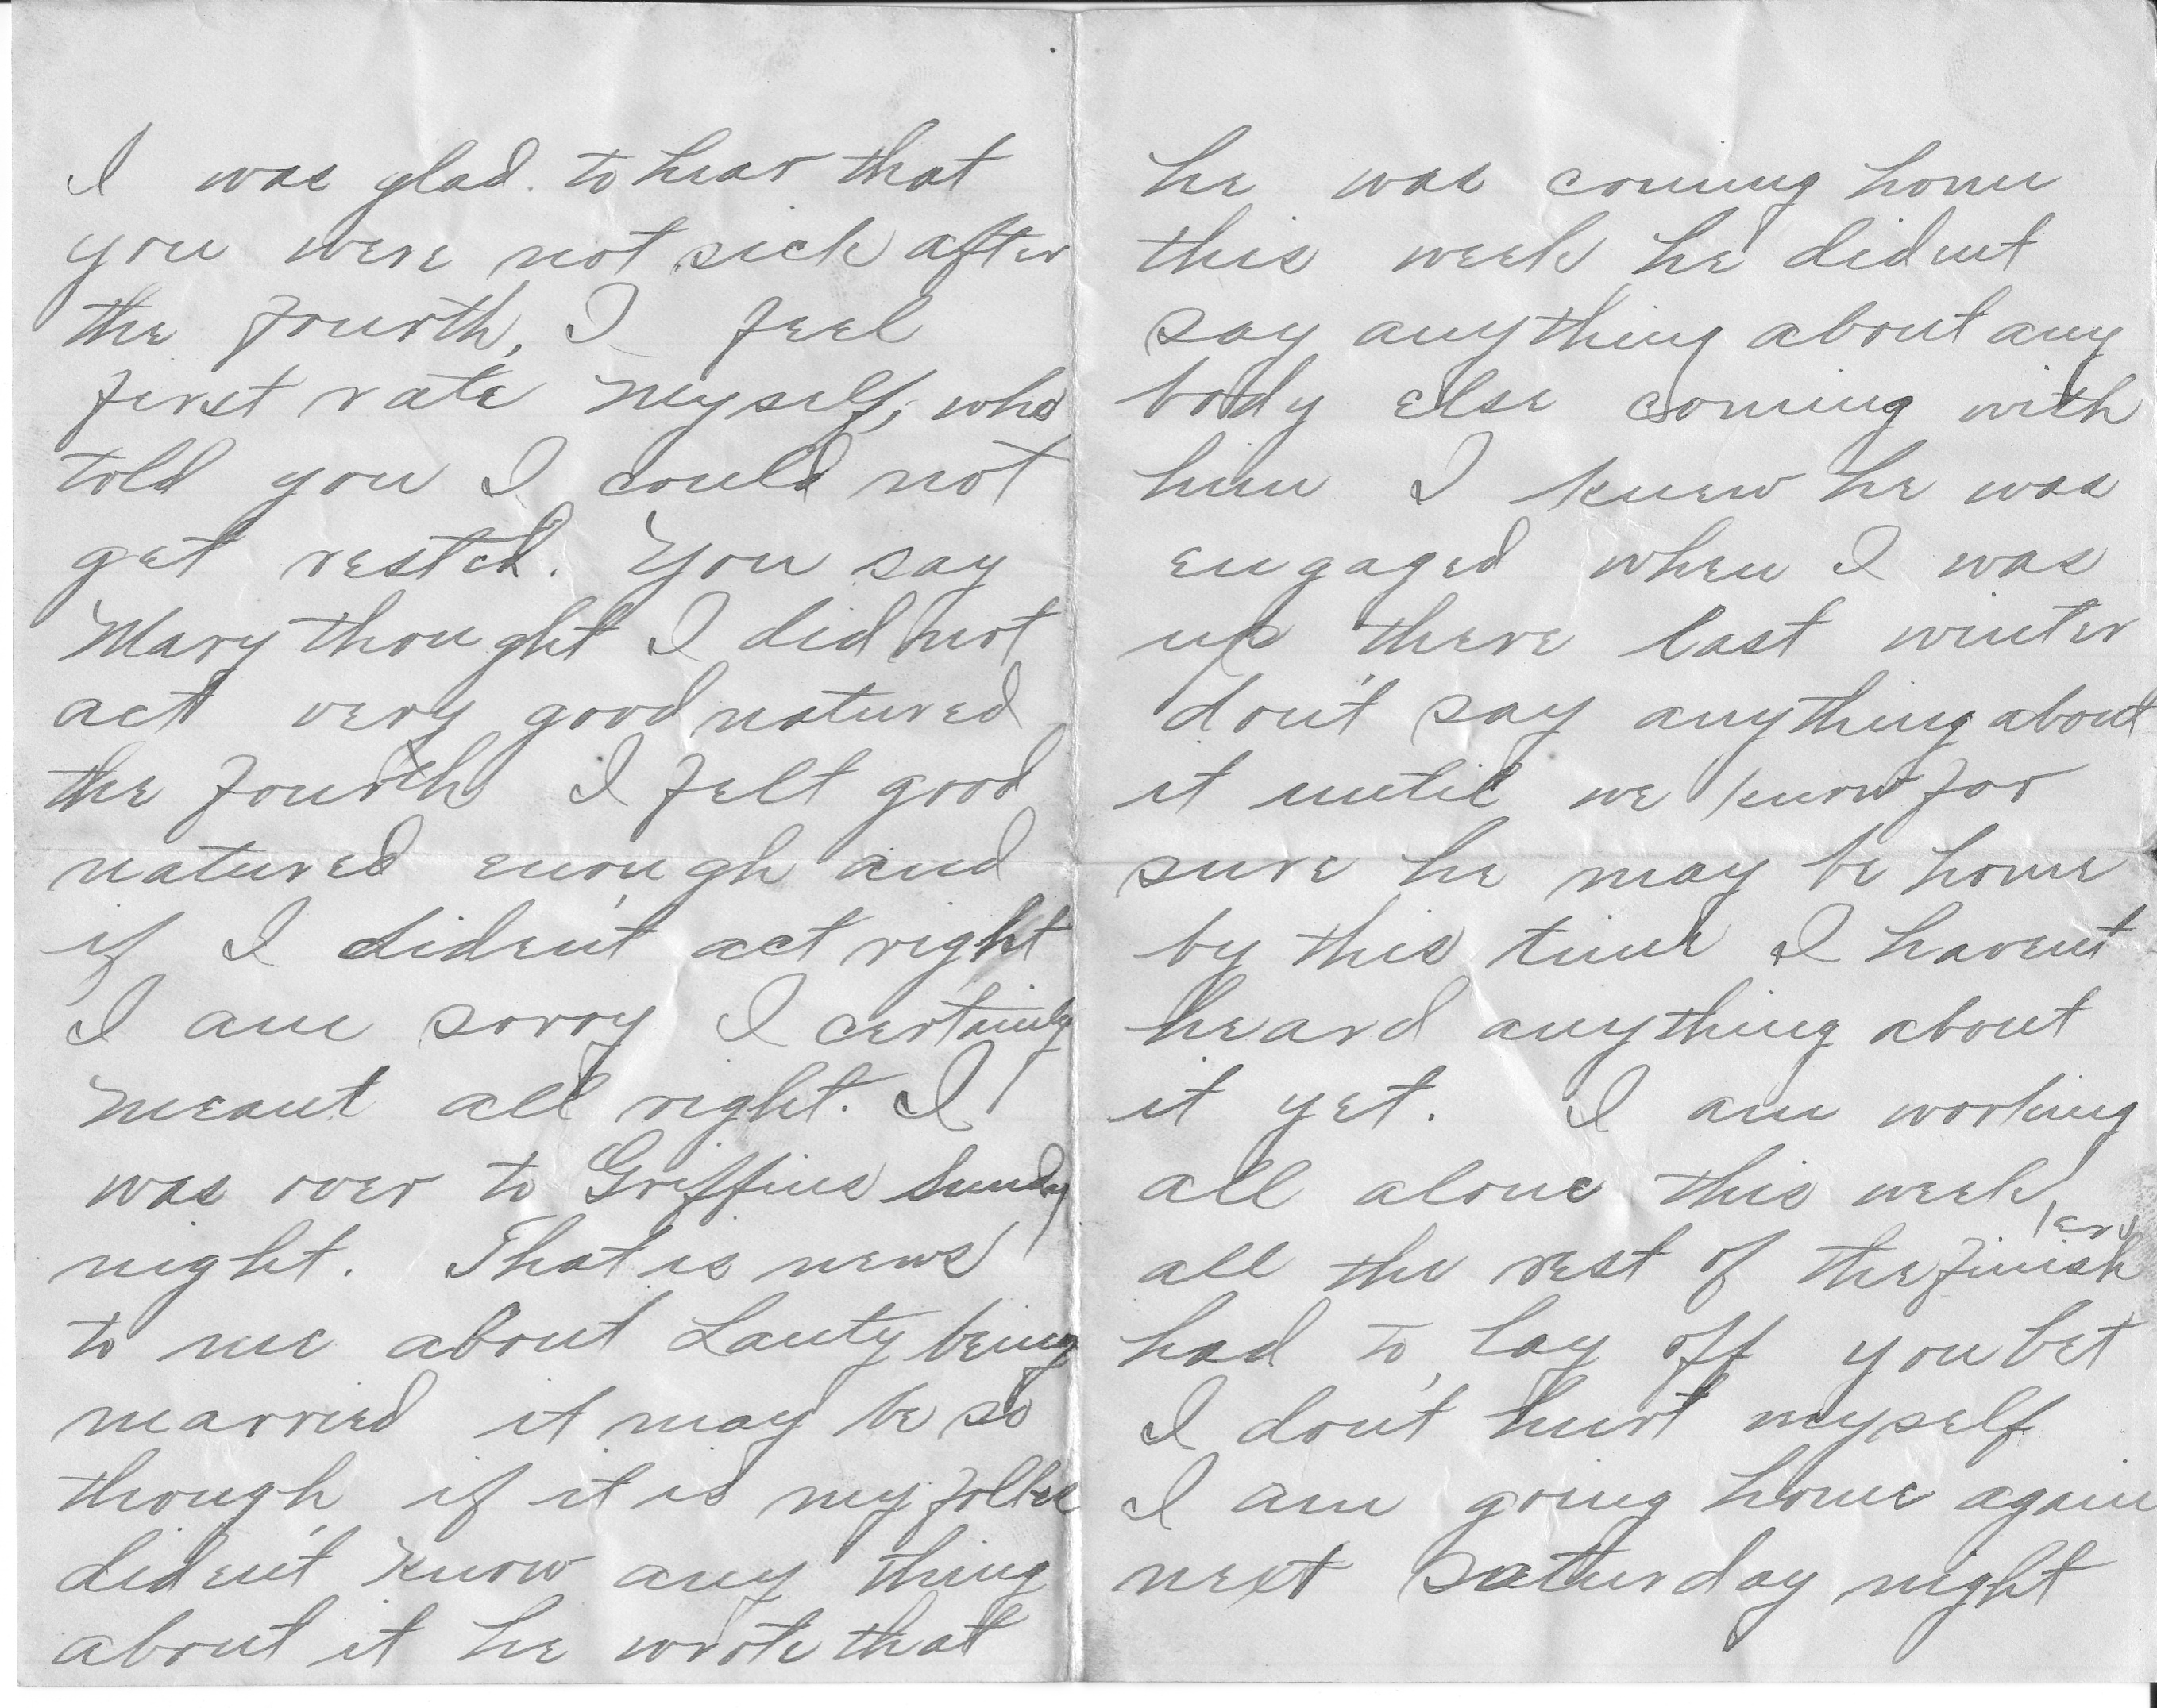 I was glad to hear that
you were not sick after
the fourth, I feel
first rate myself, who
told you I could not
get rested. You say
Mary thought I did not
act very good natured
the fourth I felt good
natured enough and
if I did'ent act right
I am sorry I certainly
meant all right. I
was over to Griffins Sunday
night. That is news
to me about Lanty being
married it may be so
though if it is my folks
did'ent know any thing
about it he wrote that
he was coming home
this week he didnt
say anything about any
body else coming with
him I knew he was
engaged when I was
up there last winter
don't say anything about
it until we know for
sure he may be home
by this time I havent
heard anything about
it yet. I am working
all alone this week
all the rest of the finishers
had to lay off you bet
I don't hurt myself
I am going home again
next Saturday night